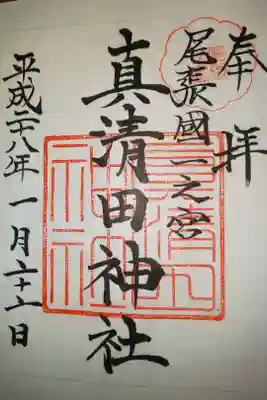 奉拝
尾張國一之宮
真清田神社
平成二十八年一月二十二日